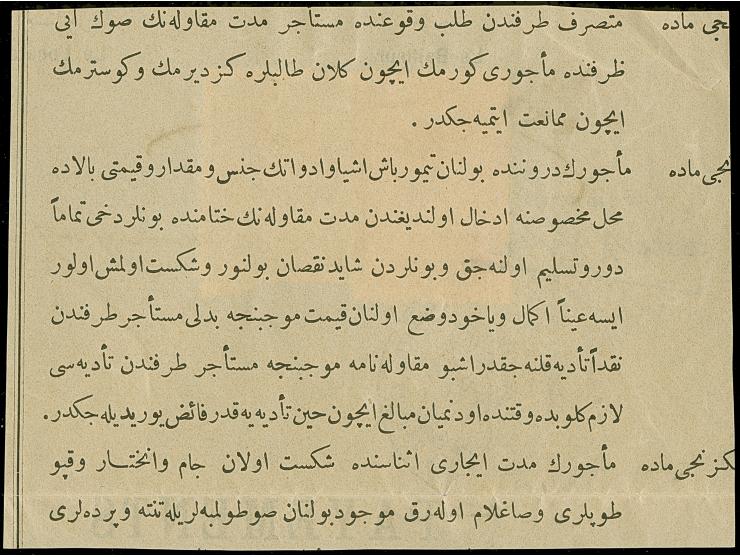 نجی ماده متصرف طرفندن طلب وقوعنده مستأجر مدت مقاوله‌نك صوك ایی
ظرفنده مأجوری كورمك ایچون كلان طالبلره كزدیرمك و كوسترمك
ایچون ممانعت ایتمیه‌جكدر .
نجی ماده مأجورك دروننده بولنان تیمورباش اشیا و ادواتك جنس و مقدار و قیمتی بالاده
محل مخصوصنه ادخال اولندیغندن مدت مقاوله‌نك ختامنده بونلر دخی تماماً
دور و تسلیم اولنه‌جق و بونلردن شاید نقصان بولنور و شكست اولمش اولور
ایسه عیناً اكمال و یاخود وضع اولنان قیمت موجبنجه بدلی مستأجر طرفندن
نقداً تأدیه قلنه‌جقدر اشبو مقاوله‌نامه موجبنجه مستأجر طرفندن تأدیه‌سی
لازم كلوبده وقتنده اودنمیان مبالغ ایچون حین تأدیه‌یه قدر فائض یوریدیله‌جكدر .
كزنجی ماده مأجورك مدت ایجاری اثناسنده شكست اولان جام و انختار و قپو
طوپلری و صاغلام اوله‌رق موجود بولنان صو طولمبه‌لریله تنته و پرده‌لری